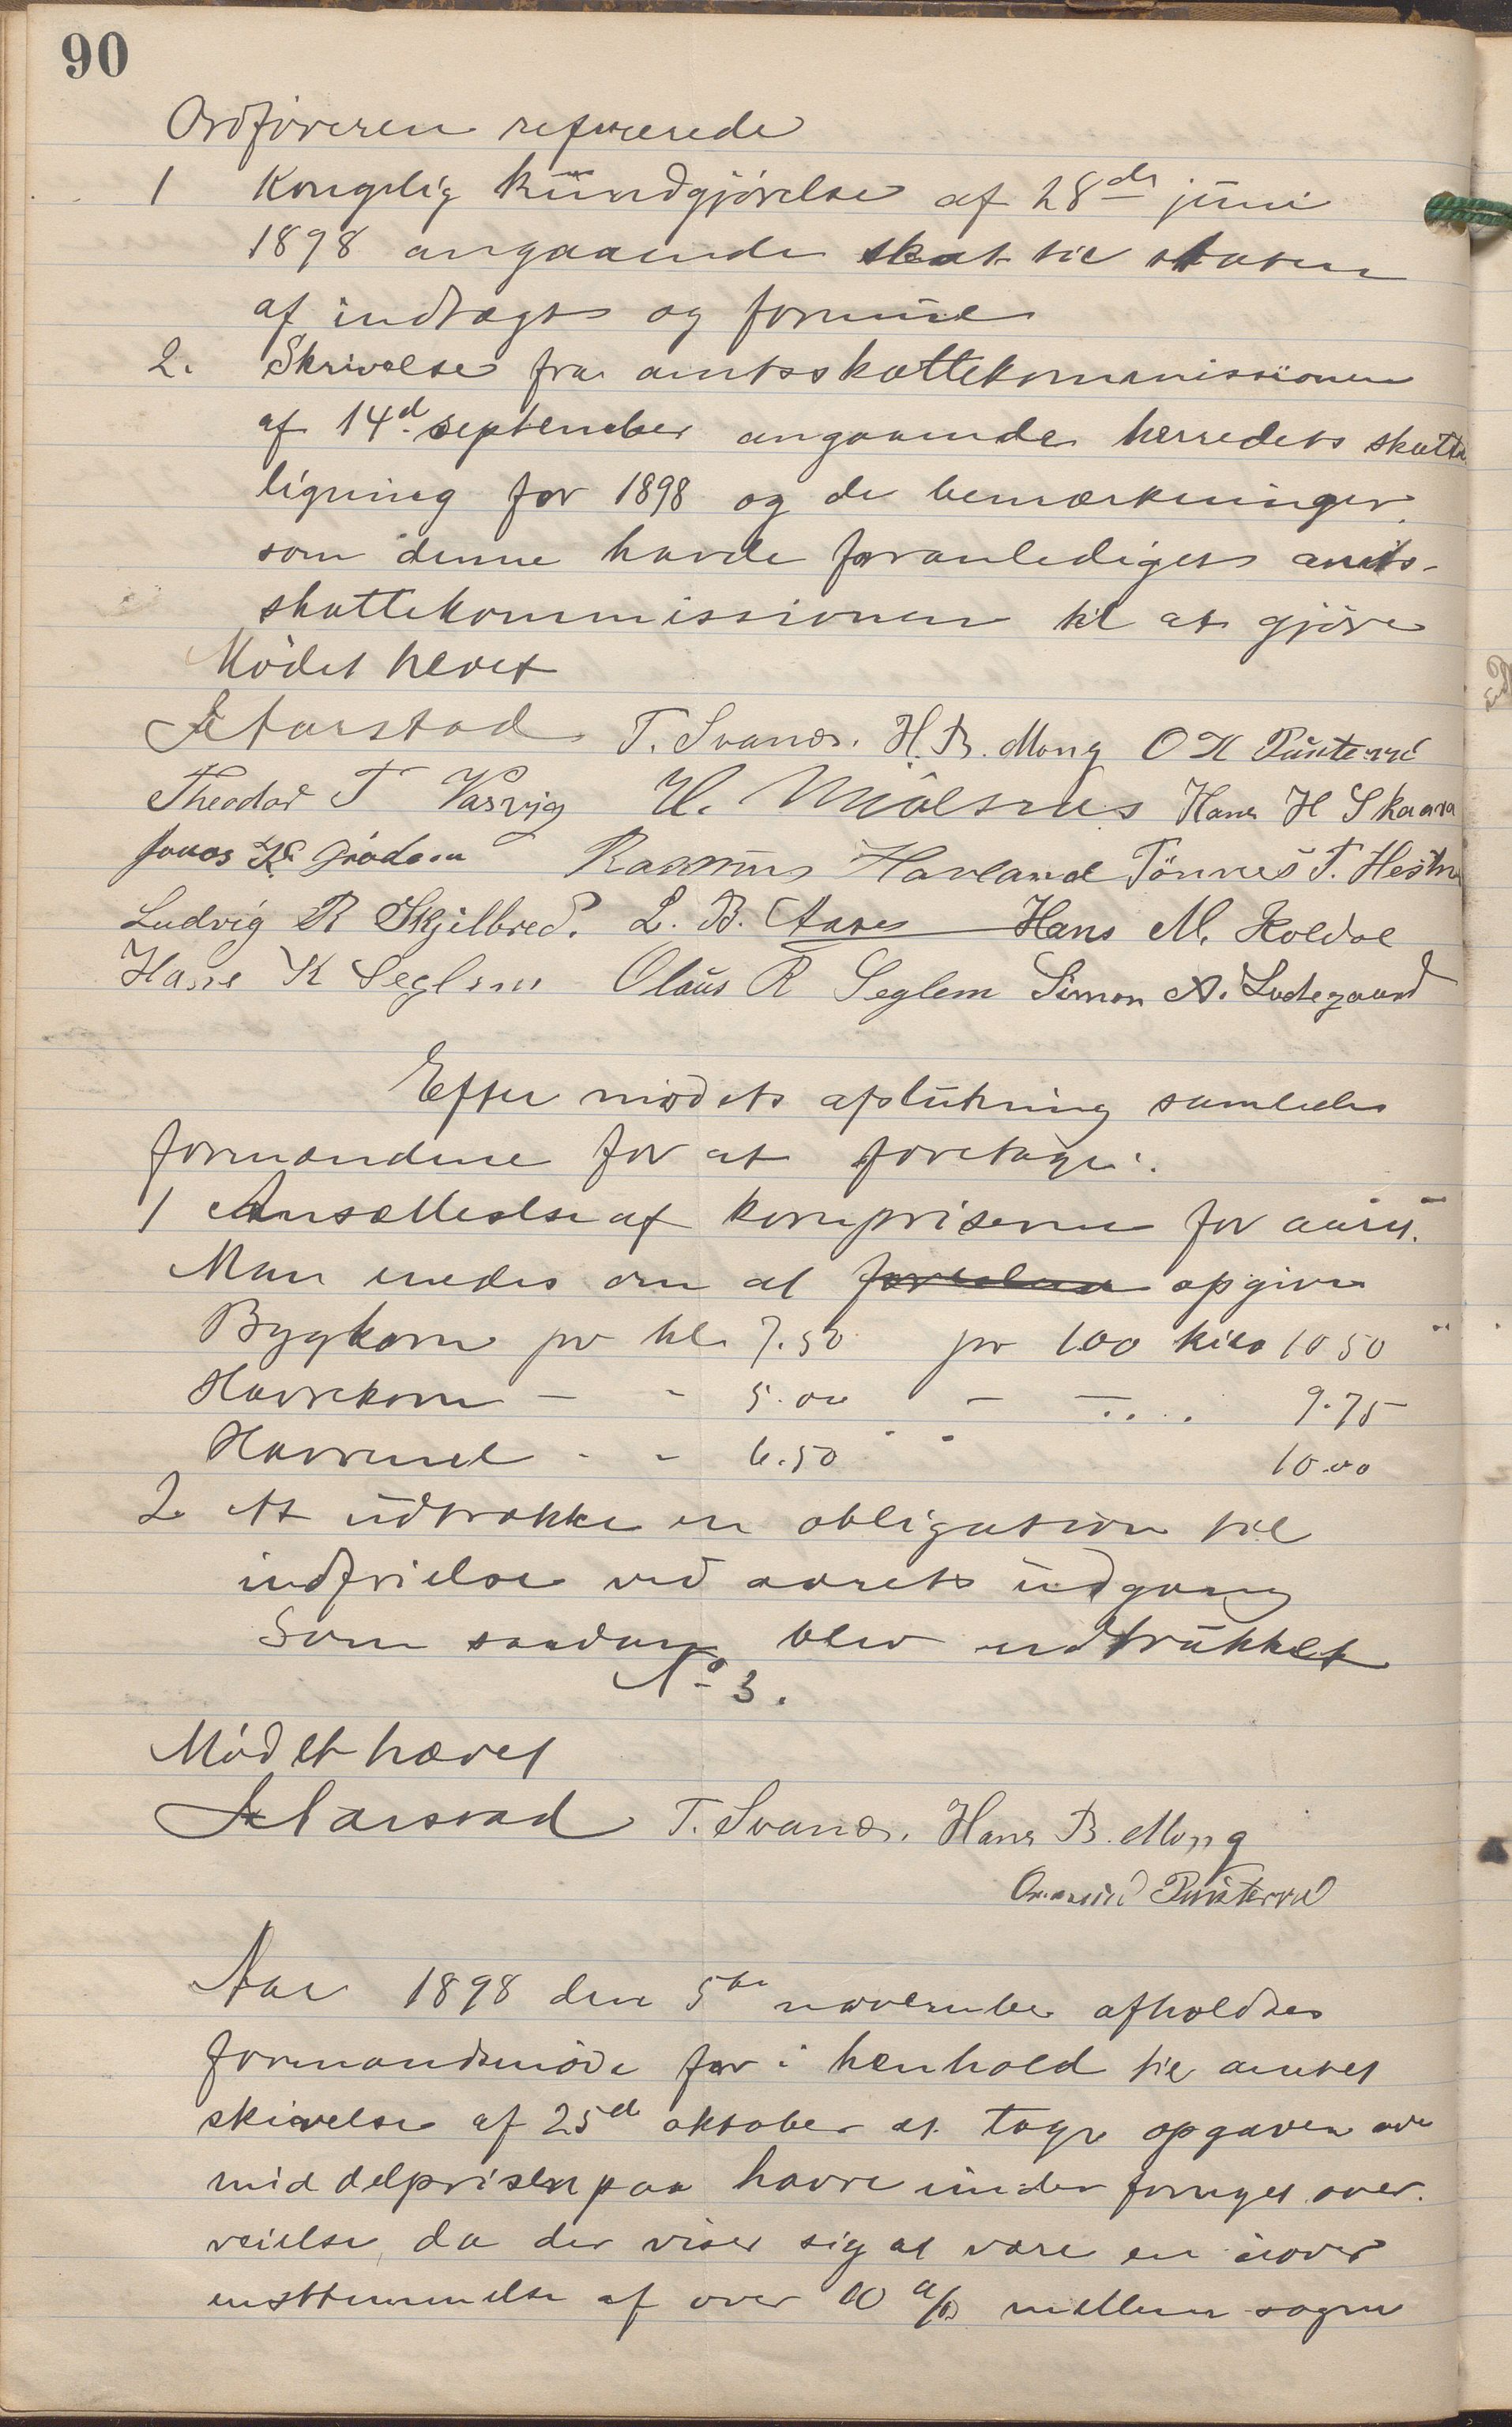 90
Ordføreren refererede
1 Kongelig kundgjørelse af 28de juni
1898 angaaende skat til staten
af indtægt og formue
2. Skrivelse fra amtsskattekommissionen
af 14d september angaaende herredets skatte
ligning for 1898 og de bemærkninger
som denne havde foranlediget amts-
skattekommissionen til at gjøre
Mødet hævet
T. Svanes. H. B. Mong O K Puntervol
Theodor T Vasvig H. Hans H Skaara
Jonas K. Grødem Rasmus Havland Tönnes T. Hestnes
Ludvig R Skjelbred. L. B. Aase Hans M. Koldal
Hans K Seglem Olaus R Seglem Simon A. Ladegaard
Efter mødets afslutning samledes
formændene for at foretage:
1 Ansættelse af kornpriserne for aaret.
Man enedes om at opgive
Bygkorn pr hl. 7.50 pr 100 kilo 10 50
Havrekorn - - 5.00 - - 9.75
Havremel - - 6.50 10.00
2 At udtrække en obligation til
indfrielse ved aarets udgang
Som saadan blev udtrukket
No 3.
Mødet hævet
T. Svanes. Hans B. Mong
Puntervol
Aar 1898 den 5te november afholdtes
formandsmøde for i henhold til amtets
skivelse af 25de oktober at tage opgaven over
middelprisen paa havre under fornyet over-
veielse, da der viser sig at være en uover
enstemmelse af over 10 % mellem sogne